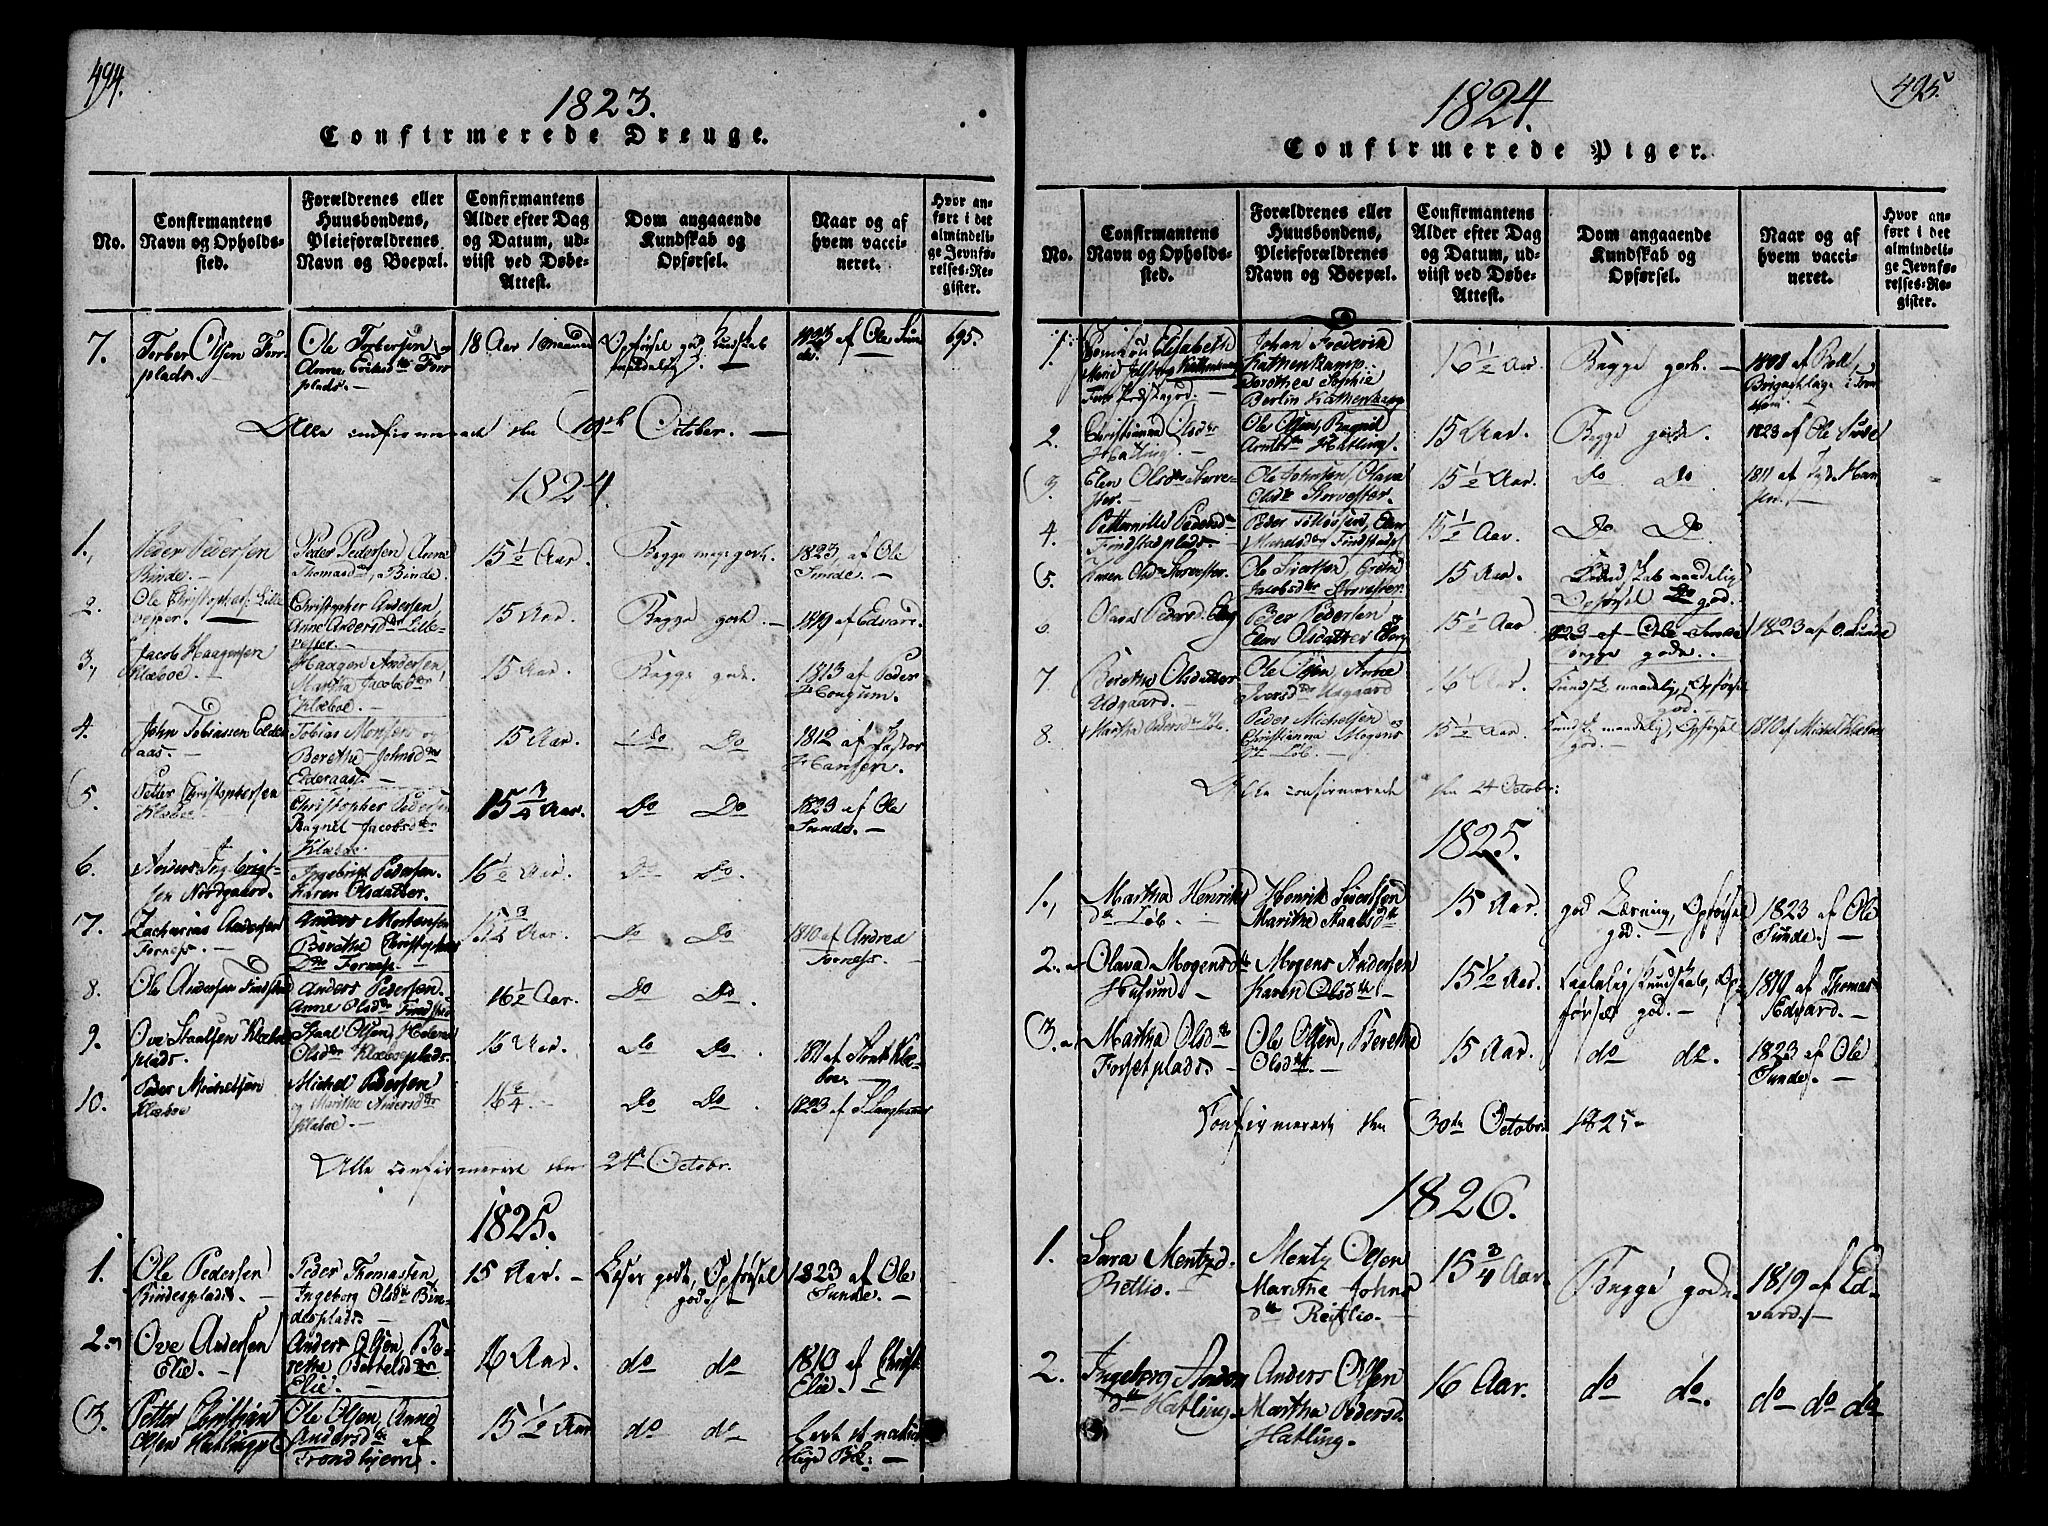 494.
1823.
Confirmerede Drenge.
No.
Confirmantens
Navn og Opholds-
sted.
Forældrenes eller
Huusbondens,
Pleieforældrenes
Navn og Boepæl.
Confirmantens
Alder efter Dag
og Datum, ud-
viist ved Døbe-
Attest.
Dom angaaende
Kundskab og
Opførsel.
Naar og af
hvem vacci-
neret.
Hvor an-
ført i det
almindeli-
ge Jevnfø-
relses-Re-
gister.
7.
Torber Olsen For-
plads.
Ole Torbersen
Anne Eriksd
plads.
18 Aar 1 maaned
Opførsel god Kundskab
maadelig.
1823 af Ole Sun
de.
695.
Alle confirmerede den October.
1824.
1.
Peder Pedersen
Binde.
Peder Pedersen Anne
Thomasdr, Binde.
15 1/2 Aar.
Begge meget godt.
1823 af Ole
Sunde.
2.
Ole Christophersf: Lille
vester.
Christopher Andersen,
Anne Andersdr Lille-
vester.
15 Aar.
Begge godt.
1819 af Edvard.
3.
Jacob Haagensen
Klæboe.
Haagen Andersen
Martha Jacobsdr
Klæboe.
15 Aar.
Begge gode.
1813 af Peder
Hougum.
4.
John Tobiassen Elde
aas.
Tobias Monsen og
Berethe Johnsd
Elderaas.
15 Aar.
Do Do
1812 af Pastor
Hansen.
5.
Petter Christophersen
Klæboe.
Christopher Pedersen
Ragnil Jacobsdr
Klæboe.
15 3/4 Aar.
Do Do
1823 af Ole
Sunde.
6.
Anders Ingebrigt-
sen Nordgaard.
Ingebrigt Pedersen.
Karen Olsdatter.
16 1/2 Aar.
Do Do.
7.
Zacharias Andersen
Forness.
Anders Mortensen
Berethe Christophers
Dr Forness.
15 3/4 Aar.
Do Do
1810 af Andrea
Forness.
8.
Ole Andersen Findstad
Anders Pedersen.
Anne Olsdr Findstad
16 1/2 Aar.
Do Do.
9.
Ove Staalsen Klæboe
plads.
Staal Olsen, Helena
Olsdr Klæboeplads.
16 Aar.
Do Do.
1811 af Arnt Klæ-
boe.
10.
Peder Michelsen
Klæboe
Michel Pedersen
og Marithe Andersdr
Klæboe.
16 3/4.
Do Do.
1823 af
Alle confirmerede den 24 Octobr.
1825.
1.
Ole Pedersen
Bindesplads.
Peder Thomassen
Ingeborg Olsdtr Bin-
desplads.
15 Aar.
Læser godt, Opførsel
god.
1823 af Ole
Sunde.
2.
Ove Andersen
Elie.
Anders Olsen, Be-
rethe
Elie.
16 Aar.
do do
1810 af Christ
Elie.
3.
Petter Christian
Olsen Hatlinge
Ole Olsen, Anne
Andersdtr af
Trondhjem.
15 1/2 Aar
do do
495.
1824.
Confirmerede Piger.
No.
Confirmantens
Navn og Opholds-
sted.
Forældrenes eller
Huusbondens,
Pleieforældrenes
Navn og Boepæl.
Confirmantens
Alder efter Dag
og Datum, ud-
viist ved Døbe-
Attest.
Dom angaaende
Kundskab og
Opførsel.
Naar og af
hvem vacci-
neret.
Hvor an-
ført i det
almindeli-
ge Jevnfø-
relses-Re-
gister.
1.
Elisabeth
Marie
Johan Frederik
Kathenkamp.
Dorothea Sophie
Berlin Kathenkamp
16 1/2 Aar.
Begge godt.
1808 af
2.
Christianna Olsdr
Hatling.
Ole Olsen, Ragnil
Arntsdr Hatling.
15 Aar.
Begge gode.
1823 af Ole Sunde
3.
Elen Olsdr Storve-
ster.
Ole Johnsen, Olava
Olsdr Storvester.
15 1/2 Aar.
Do Do
1811 af Han
sen.
4.
Petternille Pedersd
Findstadplads.
Peder Tollevsen, Elen
Michelsdr Findstadpl
15 1/2 Aar.
Do Do.
5.
Karen Olsdr Storvester.
Ole Sivertsen, Grethe
Jacobsdr Storvester.
15 Aar.
Kundskab maadelig
Opførsel Do god.
6.
Olava Pedersd. Berg
Peder Pedersen og
Elen Olsdatter Berg
15 1/2 Aar
1823 af Ole Sunde
begge gode.
1823 af O. Sunde
7.
Berethe Olsdatter
Udgaard.
Ole Olsen Anne
Iversdr Udgaard
16 Aar.
Kundsk. maadelig, Opførsel
god.
8.
Martha Pedersdr Løb.
Peder Michelsen og
Christianna Mogens
Dr Løb.
15 1/2 Aar.
Kundsk maadelig, Opførsel
god.
1810 af Michel Klæboe
Alle confirmerede den 24 Octobr:
1825.
1.
Martha Henriks
dtr Løb.
Henrik Sivertsen
Marithe Staalsdtr
15 Aar.
god Læsning, Opførsel
god.
1823 af Ole
Sunde.
2.
Olava Mogensdtr
Husum.
Mogens Andersen
Karen Olsdtr
15 1/2 Aar.
Kundskab, Op-
førsel god.
1819 af Thomas
Edvard.
3.
Martha Olsdtr
Forsetplads.
Ole Olsen, Beretha
Olsdtr.
15 Aar.
do do.
1823 af Ole
Sunde.
Confirmerede den 30te Octobr: 1825
1826.
1.
Sara Mentzd.
Retlio.
Mentz Olsen
Marithe Johns
dtr Reitlio.
15 3/4 Aar.
Begge gode.
1819 af Ed-
vard.
2.
Ingeborg Anders
dtr Hatling.
Anders Olsen
Martha Pedersd.
Hatling.
16 Aar.
do do.
do do do